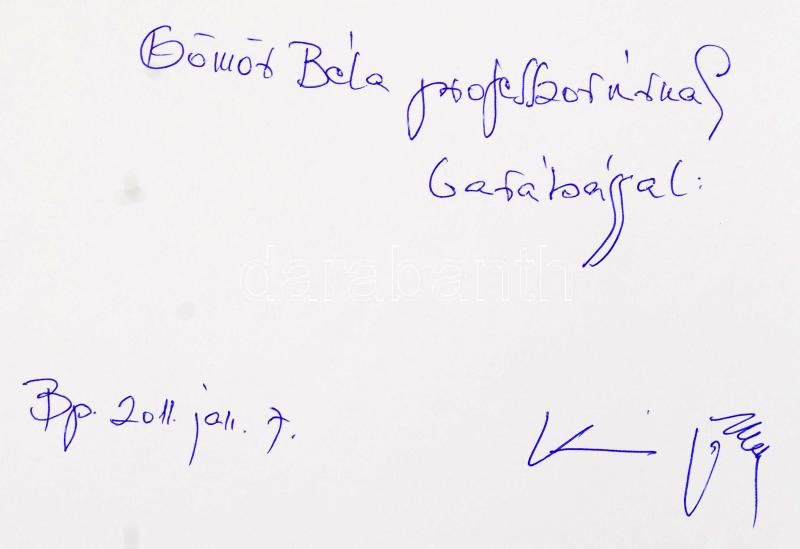 Gömör Béla professzorúrnak
barátsággal:
darabanth
Bp. 2011. jan. 7.